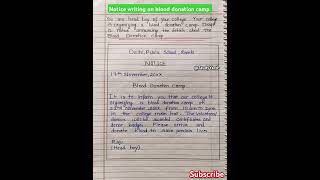 Notice writing on blood donation camp
You are head boy of your college. Your college
is organising a blood donation camp. Draft
a Notice announcing the details about the
Blood Donation Camp
Delhi Public School, Ranchi
NOTICE
17th November, 20XX
Blood Donation Camp
It is to inform you that our college is
organizing a blood donation camp on
November, 20XX from
in the college
donors will be awarded certificates &
donor badges. Please arrive and
donate blood to save precious lives
Raju
(Head boy)
Subscribe